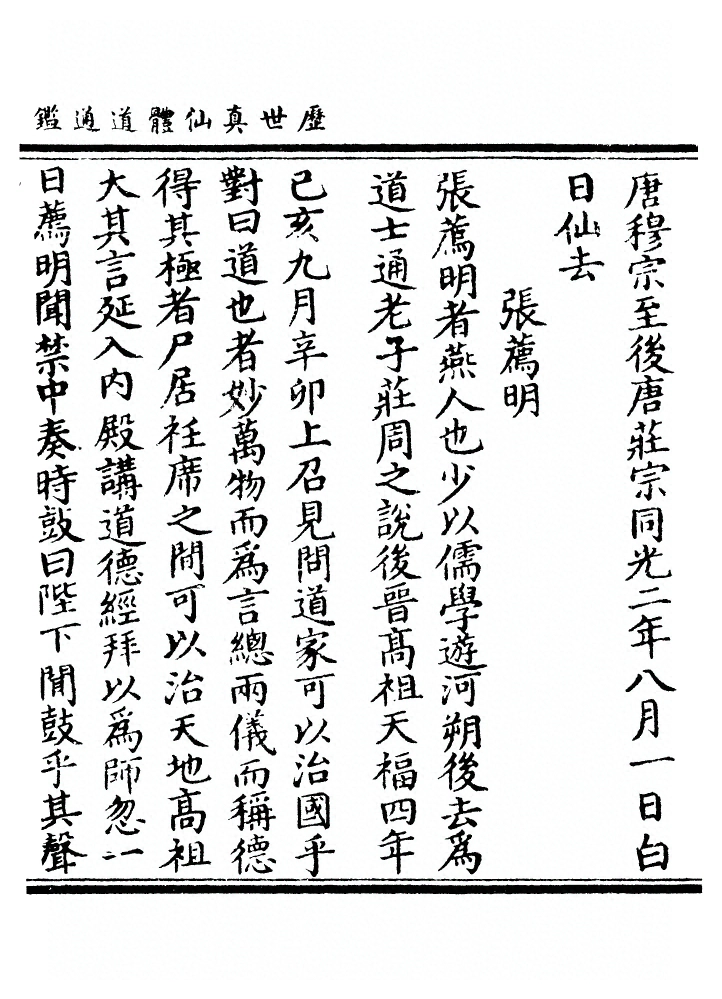 歷世真仙體道通鑑
唐穆宗至後唐莊宗同光二年八月一日白
日仙去
張薦明
張薦明者燕人也少以儒學遊河朔後去爲
道士通老子莊周之說後晉高祖天福四年
己亥九月辛卯上召見問道家可以治國乎
對曰道也者妙萬物而爲言總兩儀而稱德
得其極者尸居衽席之間可以治天地高祖
大其言延入內殿講道德經拜以爲師忽一
日薦明聞禁中奏時鼓曰陛下聞鼓乎其聲